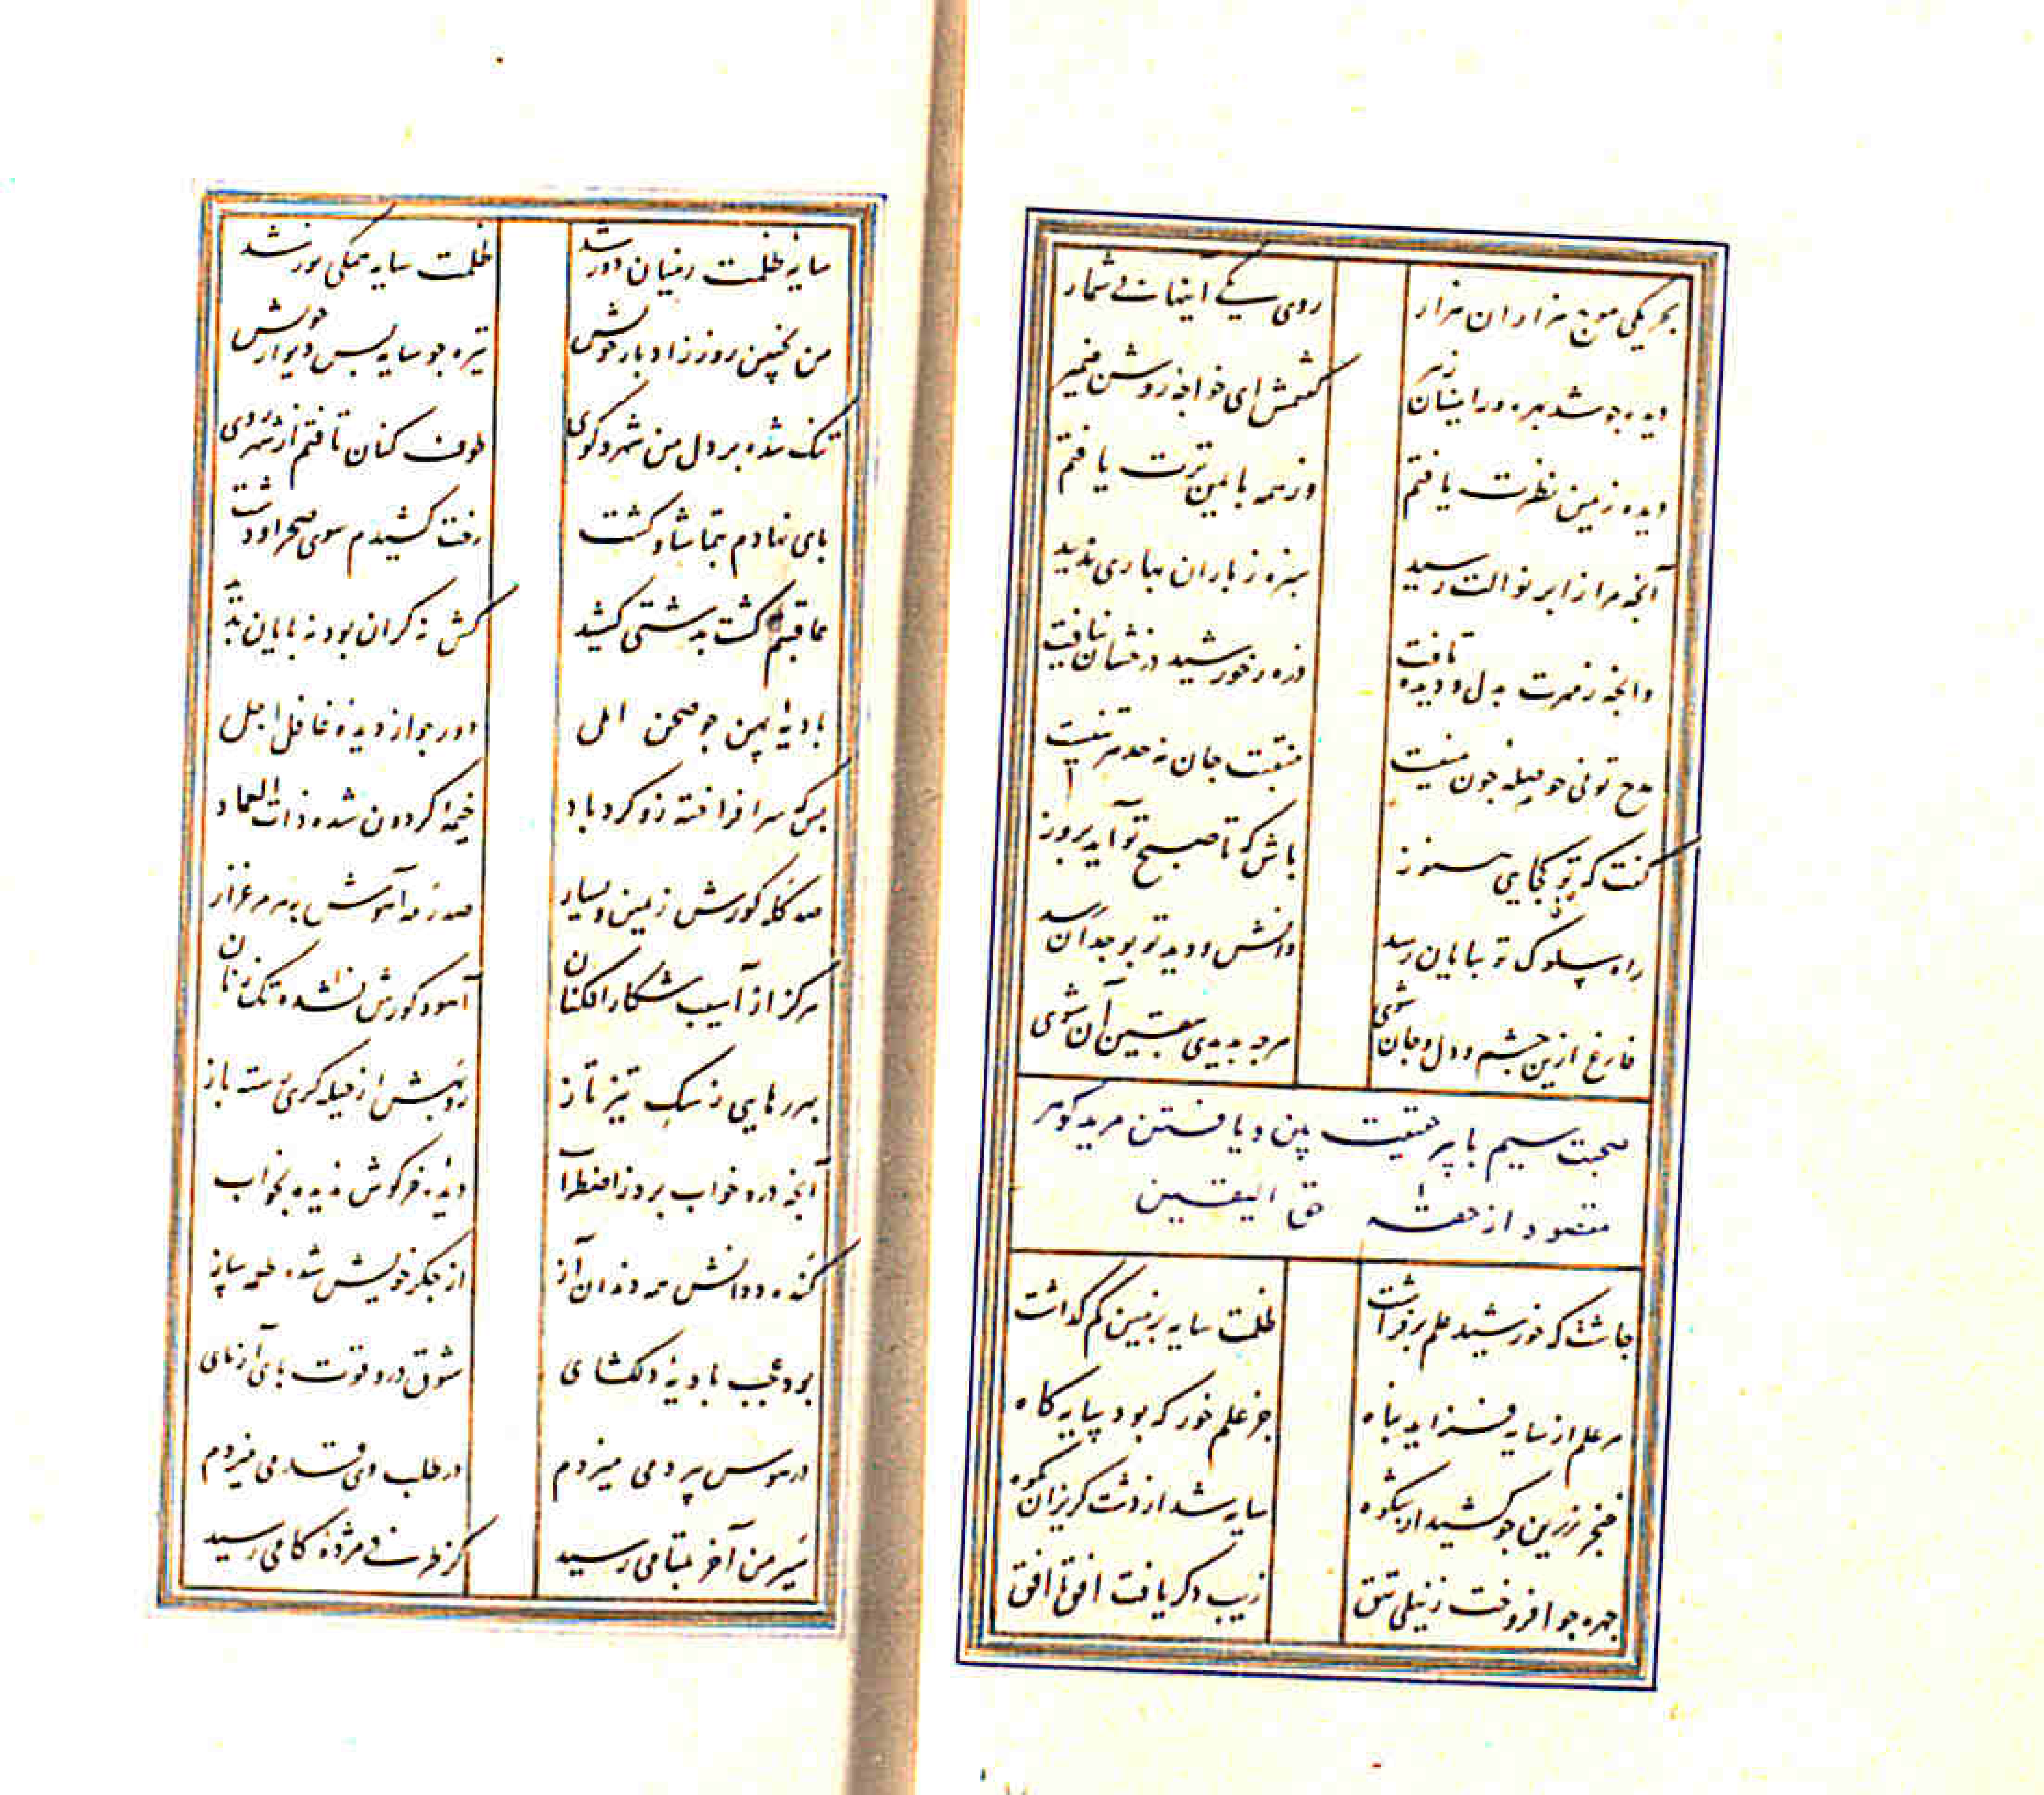 بحر یکی موج هزاران هزار روی یکی آینهات بی شمار
دیده چو شد بهره ور اینسان زپیر گفتمش ای خواجه روشن ضمیر
دیده ز یمن نظرت یافتم وز همه با یمن ترت یافتم
آنچه مرا از ابر نوالت رسید سبزه ز باران بهاری ندید
وانچه ز مهرت بدل و دیده تافت ذره ز خورشید درخشان نیافت
مدح تو نی حوصله چون منیست منقبت جان نه حد هر تنیست
گفت که تو بر کجایی هنوز باش که تا صبح تو آید بروز
راه سلوک تو بپایان رسد دانش و دید تو بوجدان رسد
فارغ ازین چشم و دل و جان شوی هرچه بدیدی بیقین آن شوی
صحبت سیم با پیر حقیقت بین و یافتن مرید گوهر
مقصود از حقه حق الیقین
چاشت که خورشید علم برفراشت ظلمت سایه بزمین کم گذاشت
هر علم از سایه فزاید پناه جز علم خور که بود سایه کاه
خنجر زرین چو کشید او بکوه سایه شد از دشت گریزان بکوه
چهره چو افروخت ز نیلی تتق زیب دگر یافت افق تا افق
سایه ظلمت ز میان دور شد ظلمت سایه همگی نور شد
من بچنین روز ز ادبار خویش تیره چو سایه پس دیوار خویش
تنگ شده بر دل من شهر و کوی طوف کنان تافتم از شهر روی
پای نهادم بتماشا و گشت رخت کشیدم سوی صحرا و دشت
عاقبتم گشت بدشتی کشید کش نه کران بود نه پایان پدید
بادیه ایمن چو صحن امل دور چو از دیده غافل اجل
بس که سر افراخته زو گردباد خیمه گردون شده ذات العماد
صد گله گورش ز یمین و یسار صد رمه آهوش بهر مرغزار
هرگز از آسیب شکار افکنان آهو و گورش نشده تک زنان
بهر رهایی ز سگ تیز تاز روبهش از حیله گری رسته باز
آنچه درو خواب برد ز اضطراب دیده خرگوش ندیده بخواب
کنده دد و دامش همه دندان آز از جگر خویش شده طعمه ساز
بود عجب بادیه دلکشای شوق درو قوت پای آزمای
در هوس پیر دمی میزدم در طلب وی قدمی میزدم
سیر من آخر بتمامی رسید کز طرفی مژده کامی رسید